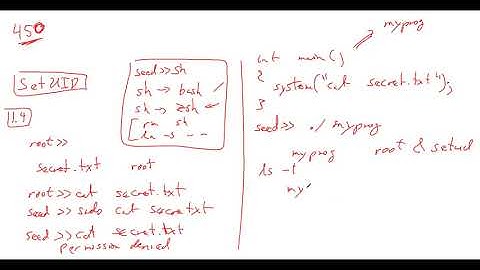 450
SetUID
1.4
root >>
secret.txt root
root >> cat secret.txt
seed >> sudo cat secret.txt
seed >> cat secret.txt
permission denied
seed >> sh
sh → bash
sh → zsh
rm sh
ln -s - -
myprog
int main()
{
system("cat secret.txt");
}
seed >> ./myprog
myprog root & setuid
ls -l
my